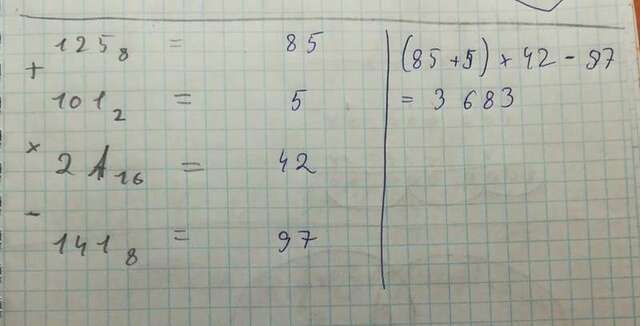 125₈ = 85
+
101₂ = 5
×
2A₁₆ = 42
-
141₈ = 97
(85+5) × 42 - 97
= 3 683